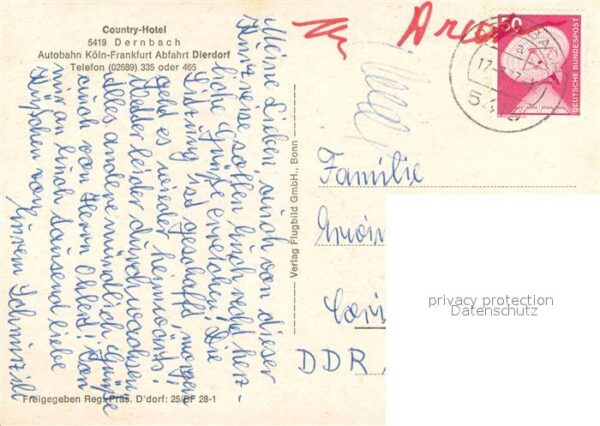 Country-Hotel
5419 Dernbach
Autobahn Köln-Frankfurt Abfahrt Dierdorf
Telefon (02689) 335 oder 465
Meine Lieben, auch von dieser
Kurzreise sollen Euch recht herz-
liche Grüße erreichen! Die
Sitzung ist geschafft, morgen
geht es wieder heimwärts!
Wetter leider durchwachsen
alles andere mündlich Grüße
auch von Herrn
mir an Euch tausend liebe
Küßchen von
Eurem
Freigegeben Reg. Präs. D'dorf: 25/BF 28-1
Verlag Flugbild GmbH., Bonn
50
DEUTSCHE BUNDESPOST
Familie
DDR
privacy protection
Datenschutz